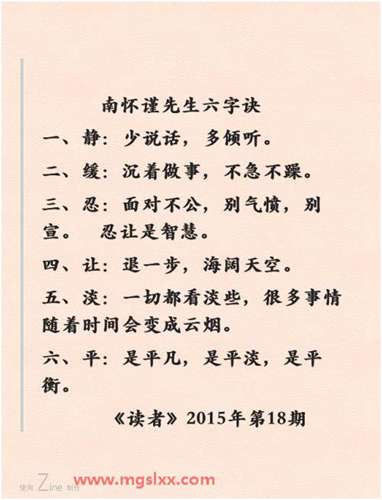 南怀谨先生六字诀
一、静：少说话，多倾听。
二、缓：沉着做事，不急不躁。
三、忍：面对不公，别气愤，别
宣。 忍让是智慧。
四、让：退一步，海阔天空。
五、淡：一切都看淡些，很多事情
随着时间会变成云烟。
六、平：是平凡，是平淡，是平
衡。
《读者》2015年第18期
使用 Zine 制作
www.mgslxx.com